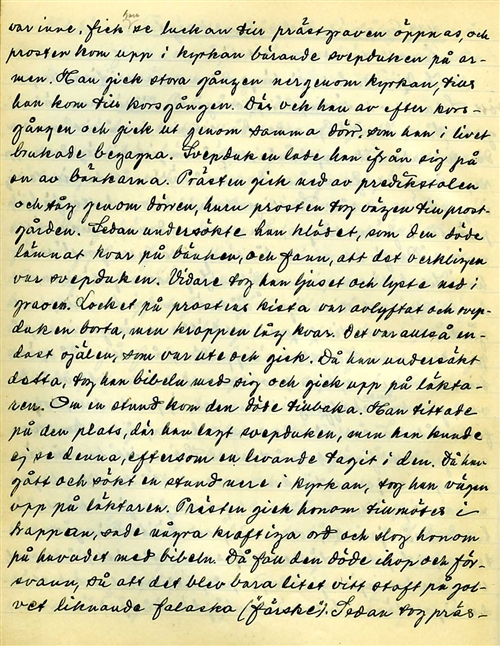 var inne, fick han se luckan till prästgraven öppnas, och
prosten kom upp i kyrkan bärande svepduken på ar-
men. Han gick stora gången ner genom kyrkan, tills
han kom till korsgången. Där vek han av efter kors-
gången och gick ut genom samma dörr, som han i livet
brukade begagna. Svepduken lade han ifrån sig på
en av bänkarna. Prästen gick ned av predikstolen
och såg genom dörren, huru prosten tog vägen till prost-
gården. Sedan undersökte han klädet, som den döde
lämnat kvar på bänken, och fann, att det verkligen
var svepduken. Vidare tog han ljuset och lyste ned i
graven. Locket på prostens kista var avlyftat och svep-
duken borta, men kroppen låg kvar. Det var alltså en-
dast själen, som var ute och gick. Då han undersökt
detta, tog han bibeln med sig och gick upp på läkta-
ren. Om en stund kom den döde tillbaka. Han tittade
på den plats, där han lagt svepduken, men han kunde
ej se denna, eftersom en levande tagit i den. Då han
gått och sökt en stund nere i kyrkan, tog han vägen
upp på läktaren. Prästen gick honom till mötes i
trappan, sade några kraftiga ord och slog honom
på huvudet med bibeln. Då föll den döde ihop och för-
svann, så att det blev bara litet vitt stoft på gol-
vet liknande falaska ("färske"). Sedan tog präs-